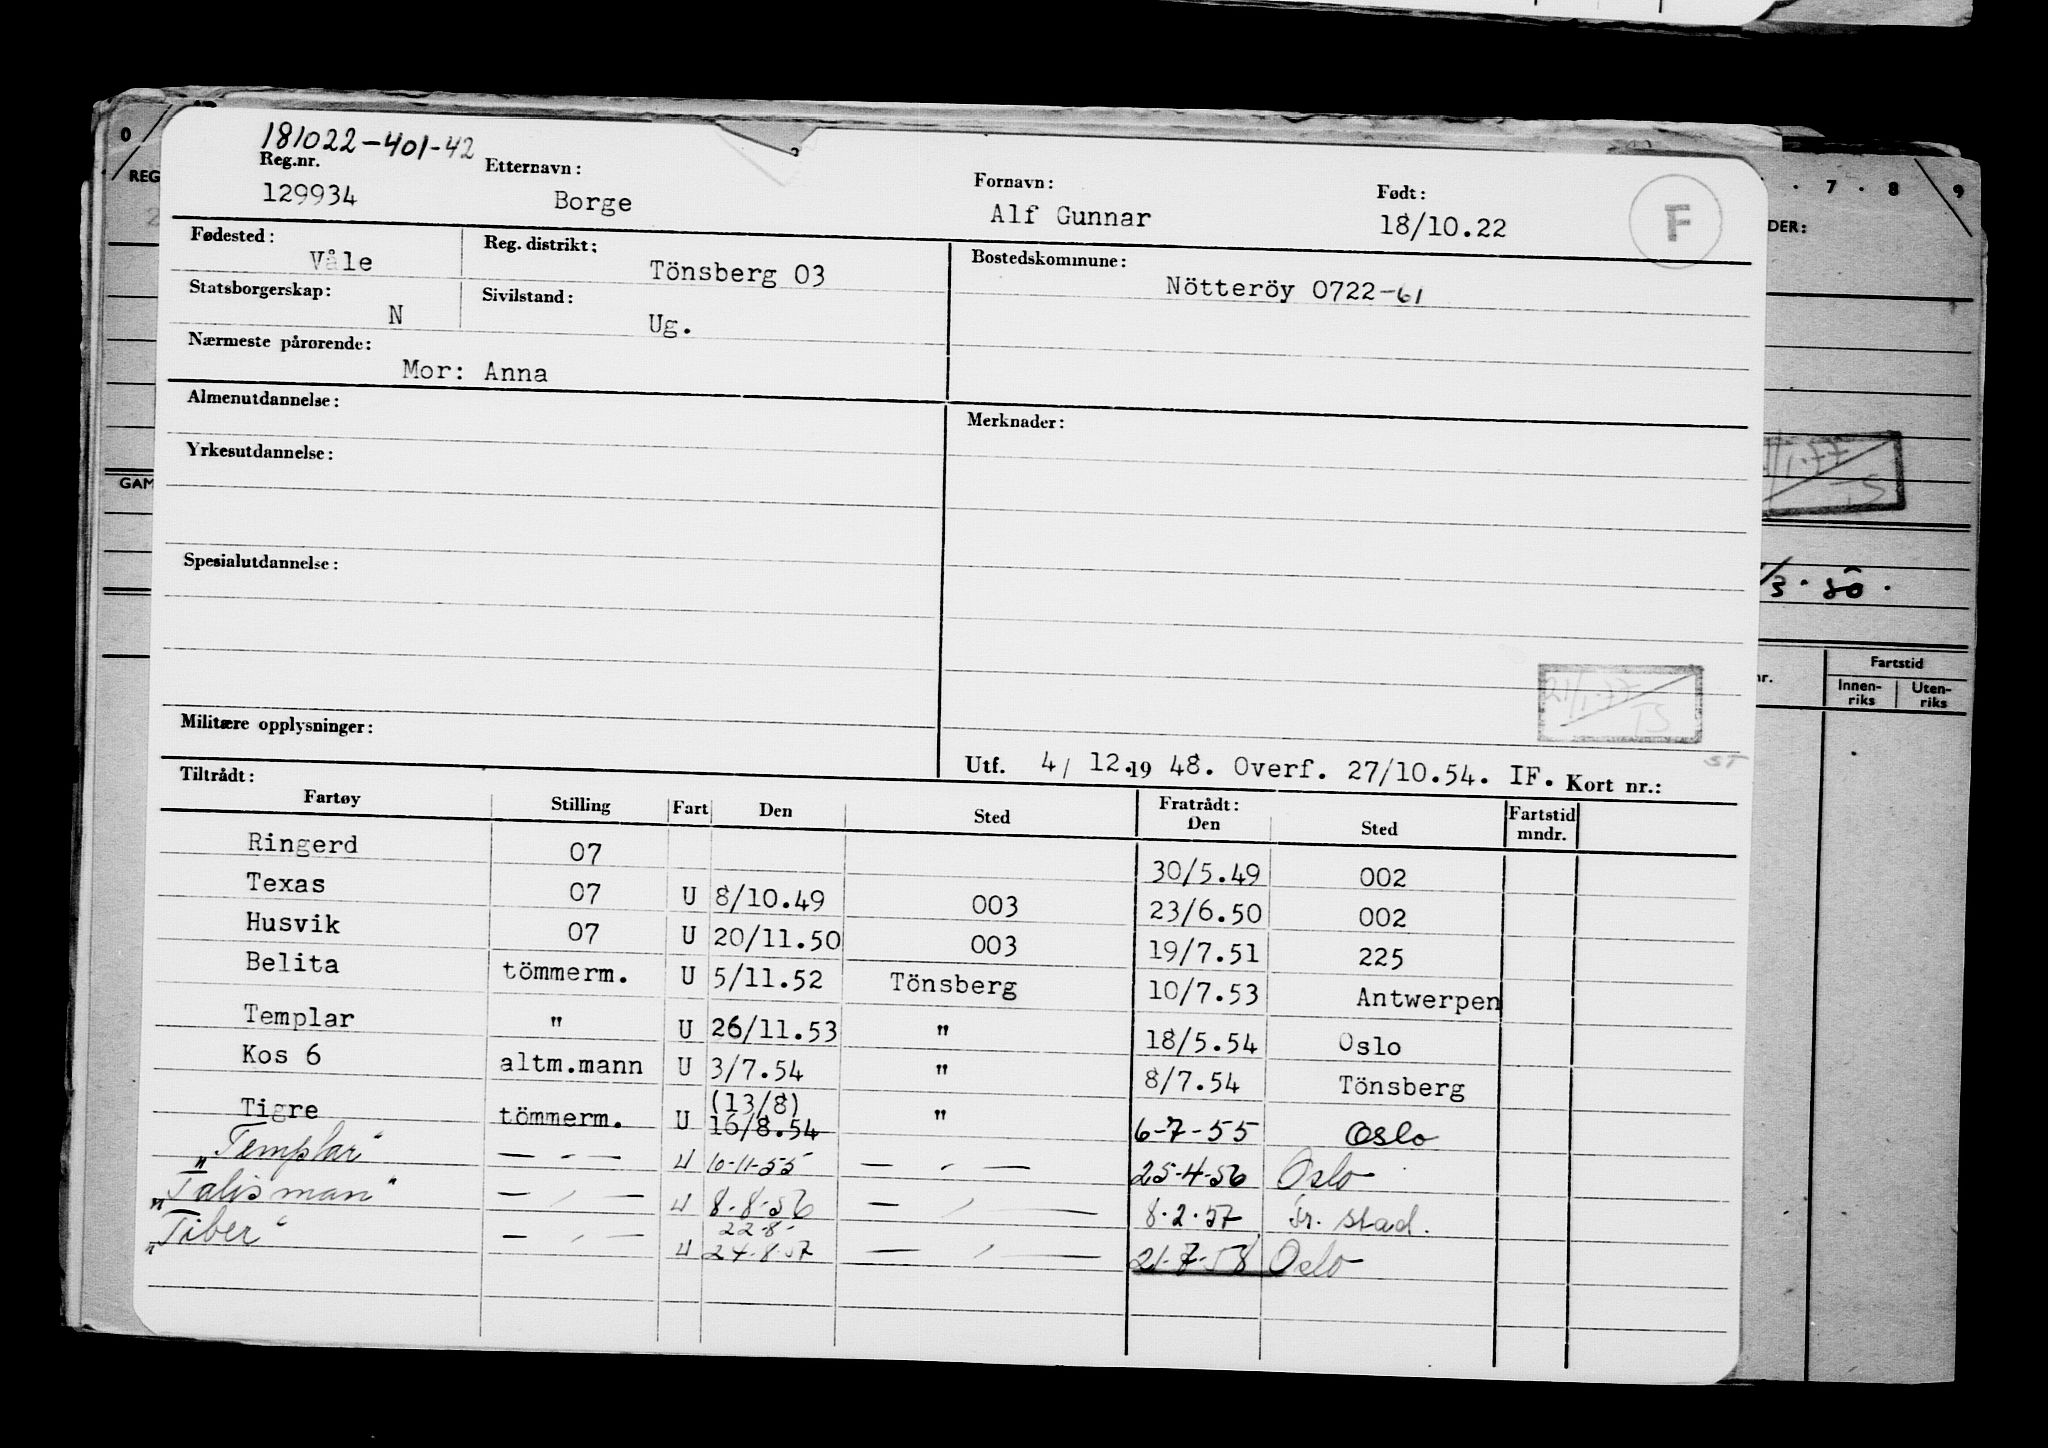 181022-401-42
Reg.nr. Etternavn: Fornavn: Født:
129934 Borge Alf Gunnar 18/10.22 F
Fødested: Reg. distrikt: Bostedskommune:
Våle Tönsberg 03 Nötteröy 0722-61
Statsborgerskap: Sivilstand:
N Ug.
Nærmeste pårørende:
Mor: Anna
Almenutdannelse: Merknader:
Yrkesutdannelse:
Spesialutdannelse:
21/1-77
TS
Militære opplysninger:
Utf. 4/ 12.19 48. Overf. 27/10.54. IF. Kort nr.:
ST
Tiltrådt: Fratrådt:
Fartøy Stilling Fart Den Sted Den Sted Fartstid mndr.
Ringerd 07 30/5.49 002
Texas 07 U 8/10.49 003 23/6.50 002
Husvik 07 U 20/11.50 003 19/7.51 225
Belita tömmerm. U 5/11.52 Tönsberg 10/7.53 Antwerpen
Templar " U 26/11.53 " 18/5.54 Oslo
Kos 6 altm.mann U 3/7.54 " 8/7.54 Tönsberg
(13/8)
Tigre tömmerm. U 16/8.54 " 6-7-55 Oslo
"Templar" — " — U 10-11-55 — " — 25-4-56 Oslo
"Talisman" — " — U 8-8-56 — " — 8.2.57 Fr. stad.
22-8-
"Tiber" — " — U 24-8-57 — " — 21-7-58 Oslo
0
REG
GAM
7 . 8 9
DER:
1/1-77
TS
/3 . 80 .
nr. Fartstid
Innen-riks Uten-riks